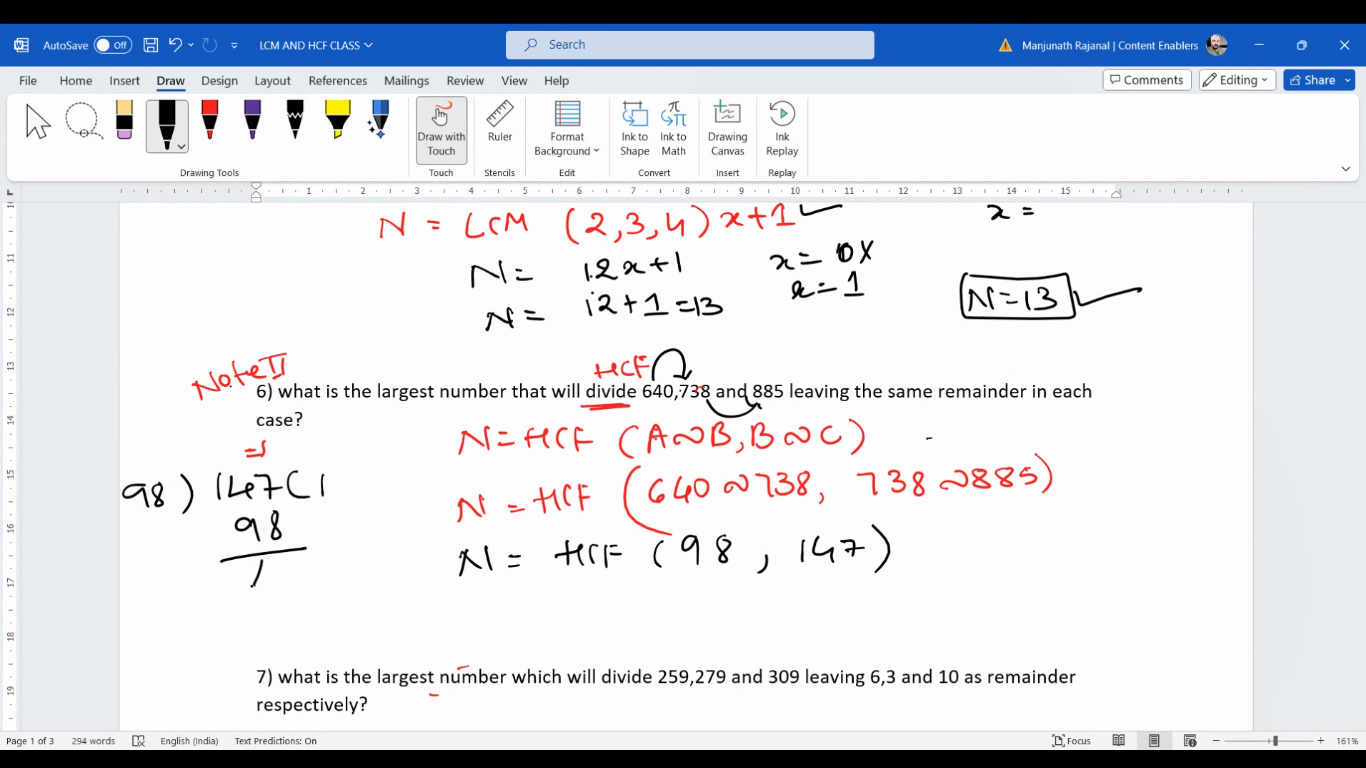 AutoSave Off LCM AND HCF CLASS Search Manjunath Rajanal | Content Enablers
File Home Insert Draw Design Layout References Mailings Review View Help Comments Editing Share
Draw with Touch Ruler Format Background Ink to Shape Ink to Math Drawing Canvas Ink Replay
Drawing Tools Touch Stencils Edit Convert Insert Replay
1 2 3 4 5 6 7 8 9 10 11 12 13 14 15
N = LCM (2,3,4) x+1 x =
N = 12x+1 x = 0X
N = 12+1=13 x = 1 N=13
Note II HCF
6) what is the largest number that will divide 640,738 and 885 leaving the same remainder in each
case?
N=HCF (A~B, B~C)
98 ) 147 ( 1 N = HCF (640~738, 738~885)
98
N = HCF (98, 147)
7) what is the largest number which will divide 259,279 and 309 leaving 6,3 and 10 as remainder
respectively?
Page 1 of 3 294 words English (India) Text Predictions: On Focus 161%